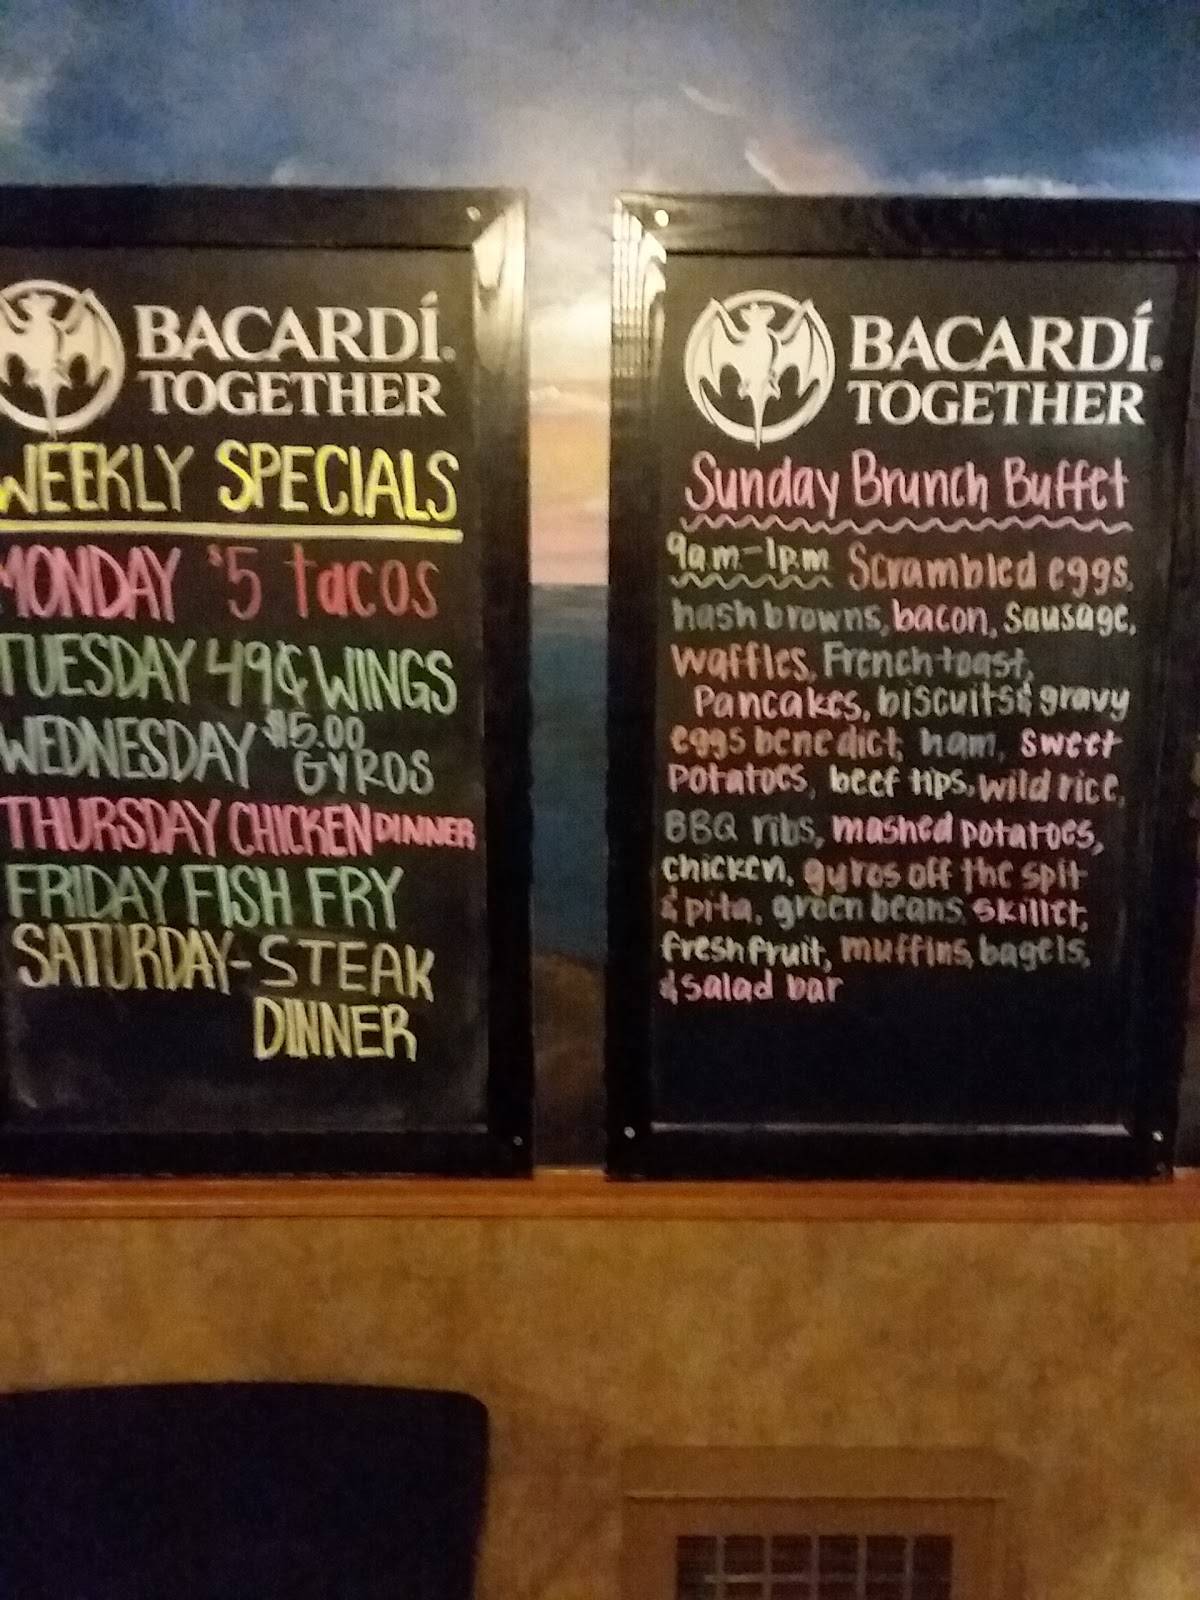 BACARDÍ.
TOGETHER
WEEKLY SPECIALS
MONDAY $5 tacos
TUESDAY 49¢ WINGS
WEDNESDAY $5.00
GYROS
THURSDAY CHICKEN DINNER
FRIDAY FISH FRY
SATURDAY-STEAK
DINNER
BACARDÍ.
TOGETHER
Sunday Brunch Buffet
9am-1pm Scrambled eggs,
hash browns, bacon, sausage,
waffles, French toast,
Pancakes, biscuits & gravy
eggs benedict, ham, sweet
potatoes, beef tips, wild rice,
BBQ ribs, mashed potatoes,
chicken, gyros off the spit
& pita, green beans, skillet,
fresh fruit, muffins, bagels,
& salad bar